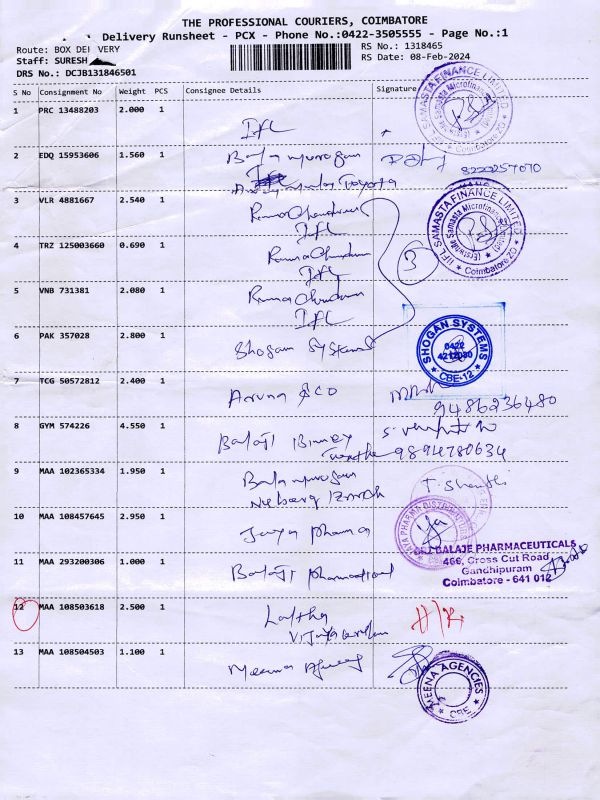 THE PROFESSIONAL COURIERS, COIMBATORE
Delivery Runsheet - PCX - Phone No.:0422-3505555 - Page No.:1
Route: BOX DEL VERY
RS No.: 1318465
Staff: SURESH
RS Date: 08-Feb-2024
DRS No.: DCJB131846501
S No Consignment No Weight PCS Consignee Details Signature
1 PRC 13488203 2.000 1
IFL
IIFL SAMASTA FINANCE LIMITED
Coimbatore ZO
2 EDQ 15953606 1.560 1 Balamurugan
Toyota
8220257070
3 VLR 4881667 2.540 1 Ramachandran
IFL
IIFL SAMASTA FINANCE LIMITED
(Erstwhile Samasta Microfinance Limited)
Coimbatore ZO
4 TRZ 125003660 0.690 1 Ramachandran
IFL
3
5 VNB 731381 2.080 1 Ramachandran
IFL
6 PAK 357028 2.800 1 Shogan Systems
SHOGAN SYSTEMS
0422
4212030
CBE-12
7 TCG 50572812 2.400 1 Aruna & CO
9486236480
8 GYM 574226 4.550 1 Balaji Binney
9894780634
9 MAA 102365334 1.950 1 Balamurugan
T. Shanthi
10 MAA 108457645 2.950 1 Jaya Pharma
JAYA PHARMA DISTRIBUTORS
11 MAA 293200306 1.000 1 Balaji Pharmaceutical
SRI BALAJE PHARMACEUTICALS
466, Cross Cut Road
Gandhipuram
Coimbatore - 641 012
12 MAA 108503618 2.500 1 Latha
13 MAA 108504503 1.100 1 Meena Agency
MEENA AGENCIES
CBE